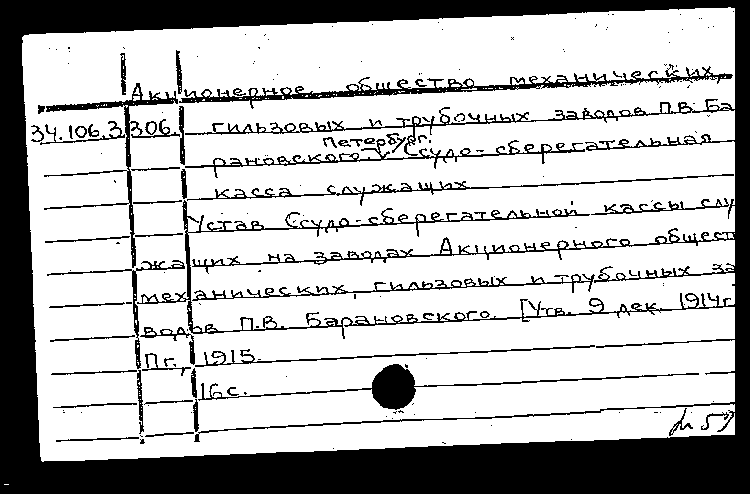 Акционерное общество механических,
34.106.3.306. гильзовых и трубочных заводов П.В. Ба
Петербург.
рановского. Ссудо-сберегательная
касса служащих
Устав Ссудо-сберегательной кассы слу
жащих на заводах Акционерного общест
механических, гильзовых и трубочных за
водов П.В. Барановского. [Утв. 9 дек. 1914г
Пг., 1915.
16с.